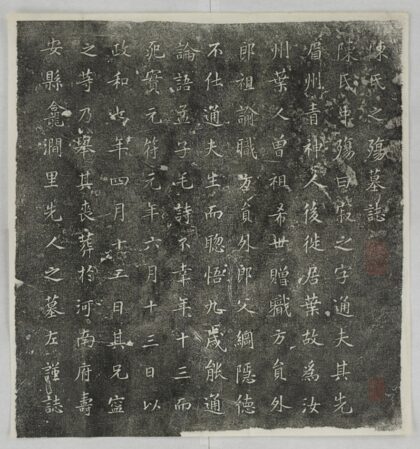 陳氏之殤墓誌
陳氏中殤曰之字通夫其先
眉州青神人後徙居葉故為汝
州葉人曾祖希世贈職方員外
郎祖諭職方員外郎父綱隱德
不仕通夫生而聰悟九歲能通
論語孟子毛詩不幸年十三而
死實元符元年六月十三日以
政和年四月十五日其兄
之等乃舉其喪葬於河南府壽
安縣龕澗里先人之墓左謹誌